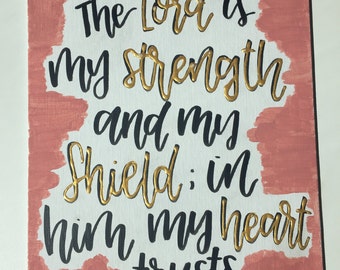 The Lord is
my strength
and my
Shield; in
him my heart
trusts